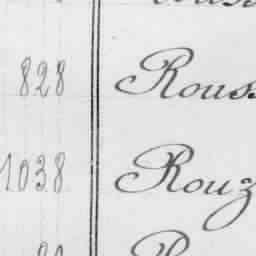 828 Rouss
1038 Rouz